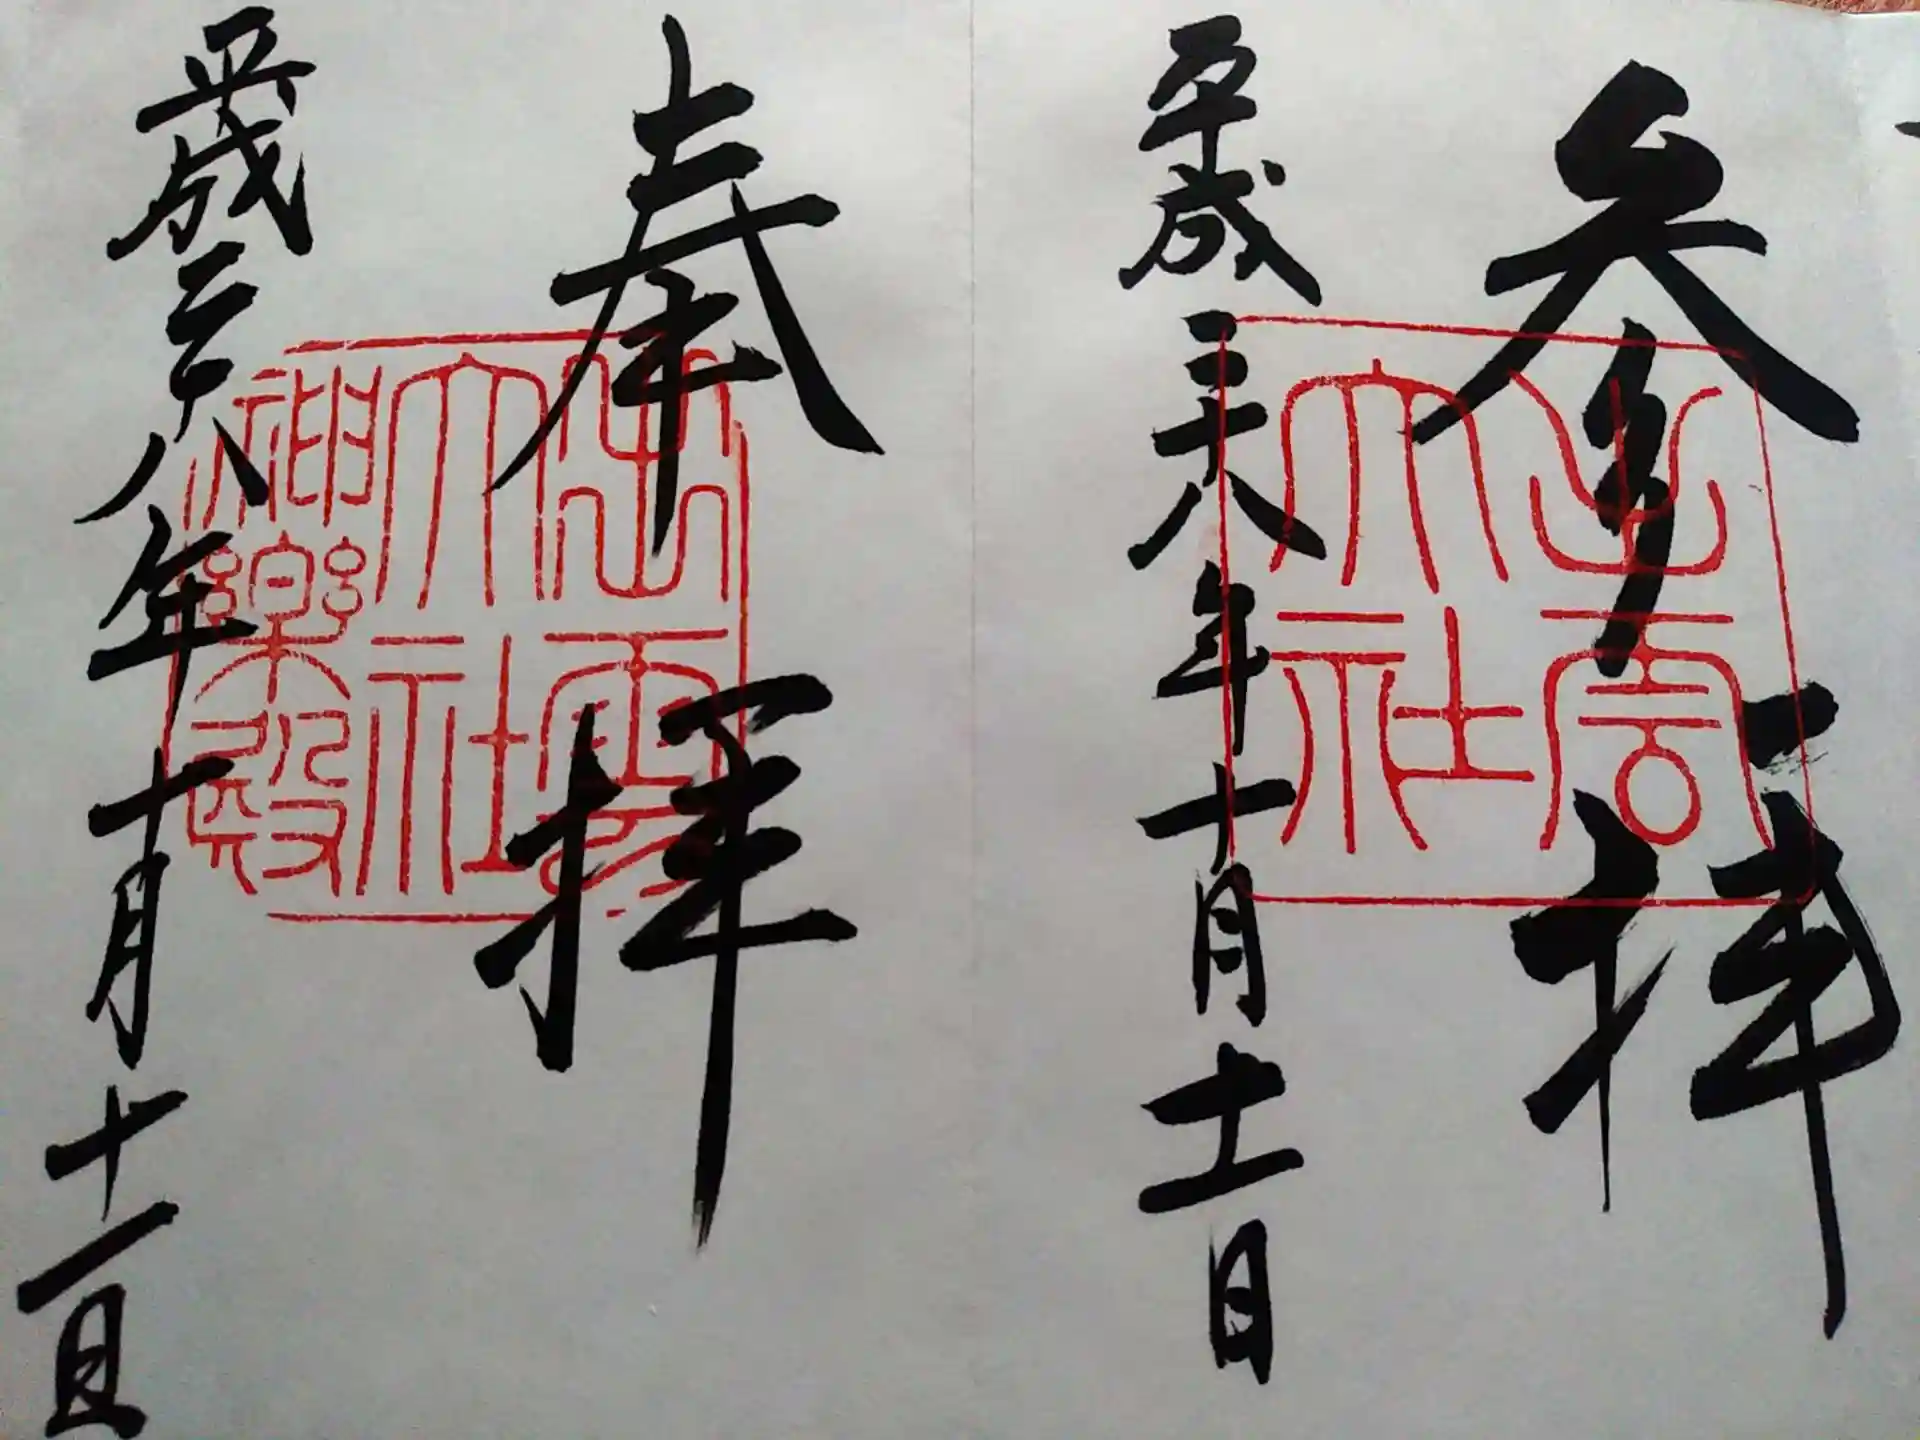 参拝
出雲
大社
平成二十八年十月十一日
奉拝
出雲
大社
神樂殿
平成二十八年十月十一日